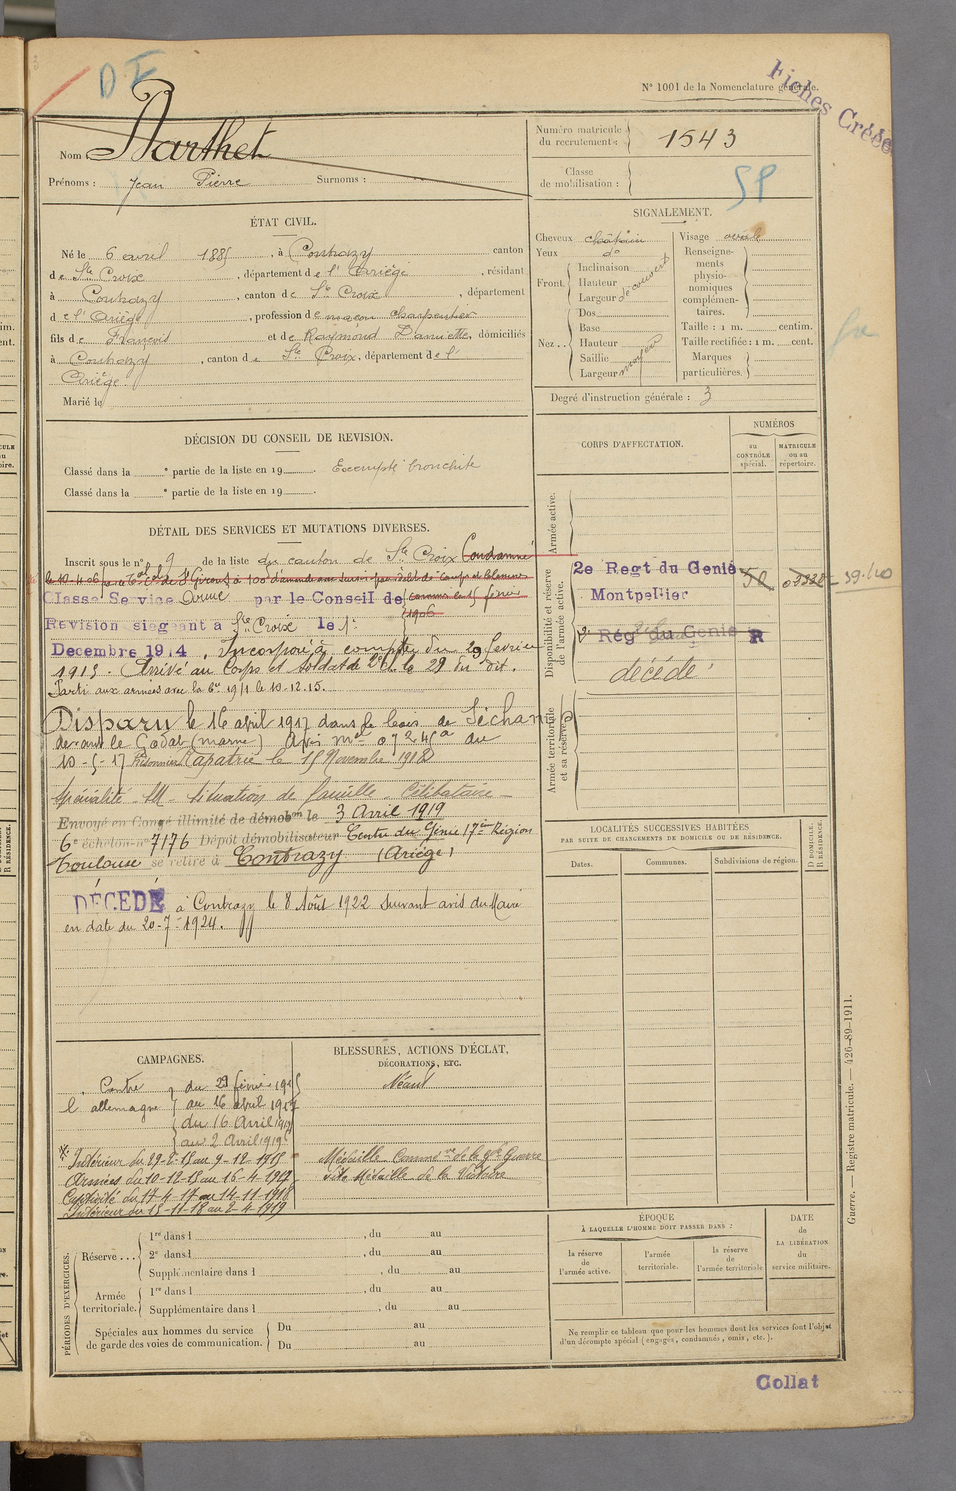 D F
N° 1001 de la Nomenclature générale.
Fiches Créées
Nom : Barthet
Prénoms : Jean Pierre Surnoms :
Numéro matricule du recrutement : 1543
Classe de mobilisation :
SP
ÉTAT CIVIL.
Né le 6 avril 1885, à Contrazy canton
de Ste Croix, département de l'Ariège, résidant
à Contrazy, canton de Ste Croix, département
de l'Ariège, profession de maçon charpentier
fils de François et de Raymond Jeannette, domiciliés
à Contrazy, canton de Ste Croix, département de l'
Ariège.
Marié le
SIGNALEMENT.
Cheveux châtain
Yeux do
Front. Inclinaison
Hauteur
Largeur
découvert
Nez.. Dos
Base
Hauteur
Saillie
Largeur
moyen
Visage ovale
Renseignements physionomiques complémentaires.
Taille : 1 m. centim.
Taille rectifiée : 1 m. cent.
Marques particulières.
Degré d'instruction générale : 3
DÉCISION DU CONSEIL DE REVISION.
Classé dans la e partie de la liste en 19 . Exempté bronchite
Classé dans la e partie de la liste en 19 .
DÉTAIL DES SERVICES ET MUTATIONS DIVERSES.
Inscrit sous le n° 9 de la liste du canton de Ste Croix Condamné
le 10-4-06 par le de St Girons à 100 d'amende avec sursis pour délit de Coups et blessures
commis en 15 février
1906
Classé Service Armé par le Conseil de
Révision siégeant à Ste Croix le
Décembre 1914. Incorporé à compter du 29 février
1915. Arrivé au Corps et soldat de 2e cl. le 29 du dit.
Parti aux armées avec la Cie 19/1 le 10-12-15.
Disparu le 16 avril 1917 dans le bois de Séchamp
devant le Godat (Marne) Avis mel 07245a du
10-5-17 Prisonnier Rapatrié le 15 Novembre 1918
Spécialité M. Situation de famille Célibataire
Envoyé en Congé illimité de démobon le 3 Avril 1919
6e échelon n° 7176 Dépôt démobilisateur Centre du Génie 17e Région
Toulouse se retire à Contrazy (Ariège)
DÉCÉDÉ à Contrazy le 8 Août 1922 suivant avis du Maire
en date du 20-7-1924.
CORPS D'AFFECTATION.
NUMÉROS
au CONTRÔLE spécial.
MATRICULE ou au répertoire.
Armée active.
Disponibilité et réserve de l'armée active.
2e Regt du Génie
Montpellier
39.40
2e Rég. du Génie R
décédé
Armée territoriale et sa réserve.
LOCALITÉS SUCCESSIVES HABITÉES
PAR SUITE DE CHANGEMENTS DE DOMICILE OU DE RÉSIDENCE.
Dates.
Communes.
Subdivisions de région.
D DOMICILE. R RÉSIDENCE.
CAMPAGNES.
Contre l'allemagne
du 29 février 1915
au 16 avril 1917
du 16 Avril 1917
au 2 Avril 1919
Intérieur du 29-2-15 au 9-12-1915
Armées du 10-12-15 au 16-4-1917
Captivité du 17-4-17 au 14-11-1918
Intérieur du 15-11-18 au 2-4-1919
BLESSURES, ACTIONS D'ÉCLAT, DÉCORATIONS, ETC.
Néant
Médaille Commve de la gde Guerre
Dite Médaille de la Victoire
PÉRIODES D'EXERCICES.
Réserve ... 1re dans l , du au
2e dans l , du au
Supplémentaire dans l , du au
Armée territoriale. 1re dans l , du au
Supplémentaire dans l , du au
Spéciales aux hommes du service de garde des voies de communication. Du au
Du au
ÉPOQUE
À LAQUELLE L'HOMME DOIT PASSER DANS :
la réserve de l'armée active.
l'armée territoriale.
la réserve de l'armée territoriale
DATE de LA LIBÉRATION du service militaire.
Ne remplir ce tableau que pour les hommes dont les services font l'objet
d'un décompte spécial (engagés, condamnés, omis, etc.).
Guerre. — Registre matricule. — 426-89-1911.
Collat